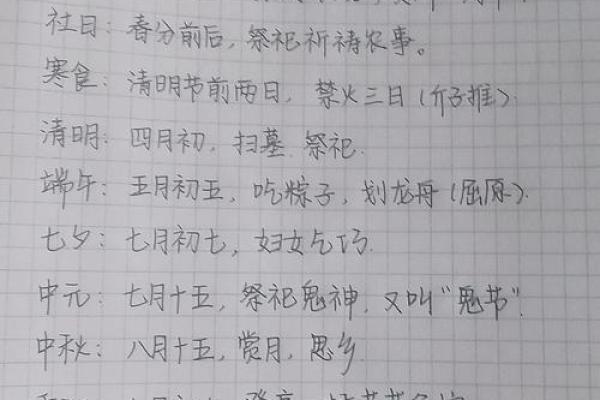 社日：春分前后，祭祀祈祷农事。
寒食：清明节前两日，禁火三日（介子推）
清明：四月初，扫墓 祭祀.
端午：五月初五，吃粽子，划龙舟（屈原）.
七夕：七月初七，妇女乞巧.
中元：七月十五，祭祀鬼神，又叫“鬼节”.
中秋：八月十五，赏月，思乡